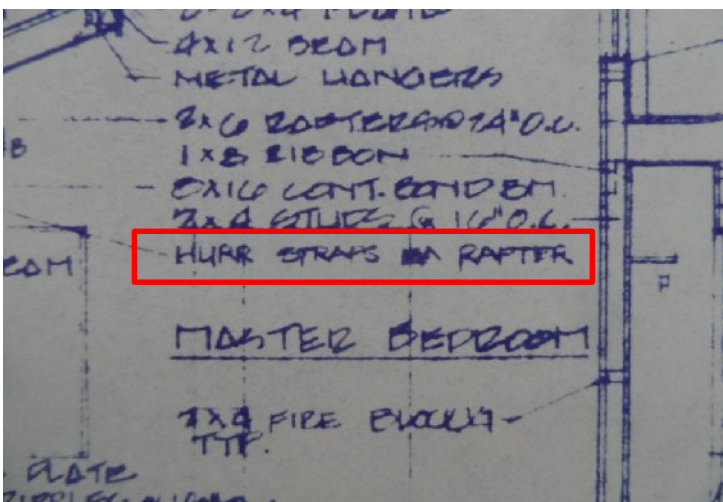 4X12 BEAM
METAL HANGERS
2X6 RAFTERS @ 24" O.C.
1X8 RIBBON
8X16 CONT. BOND BM.
2X4 STUDS @ 16" O.C.
HURR STRAPS EA RAFTER
MASTER BEDROOM
2X4 FIRE
TYP.
PLATE